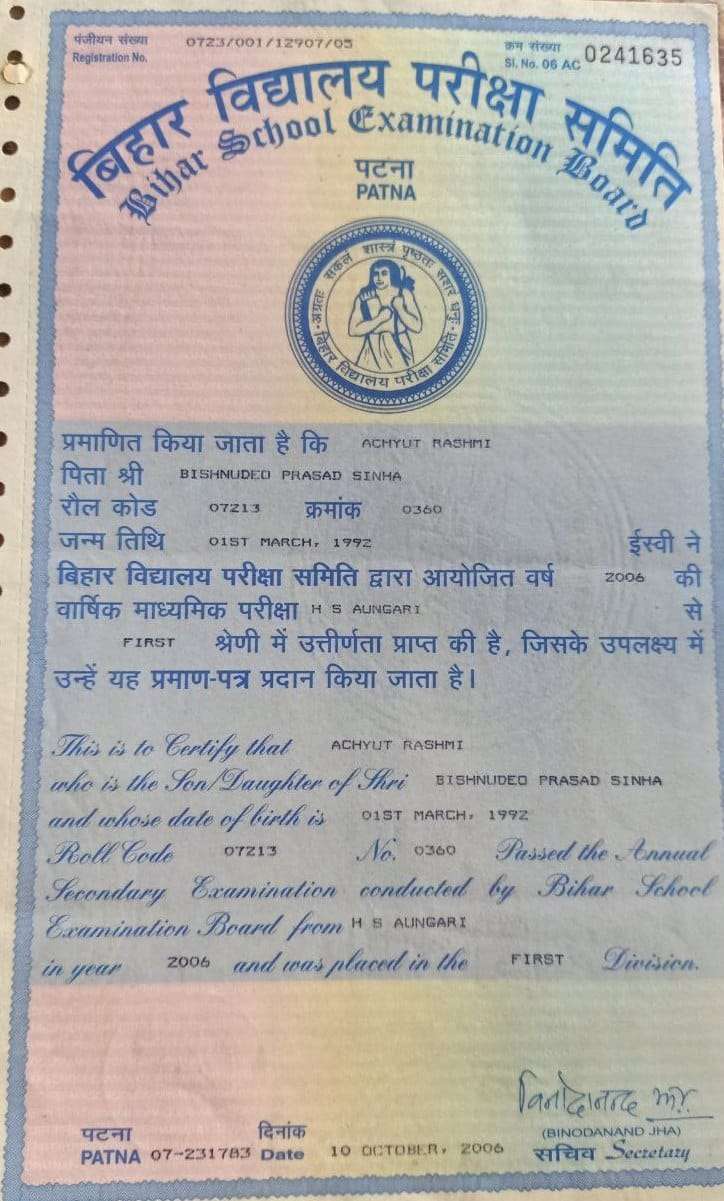 पंजीयन संख्या 0723/001/12907/05 क्रम संख्या
Registration No. Sl. No. 06 AC 0241635
बिहार विद्यालय परीक्षा समिति
Bihar School Examination Board
पटना
PATNA
अग्रतः सकलं शास्त्रं पृष्ठतः सशरं धनुः
बिहार विद्यालय परीक्षा समिति
प्रमाणित किया जाता है कि ACHYUT RASHMI
पिता श्री BISHNUDEO PRASAD SINHA
रौल कोड 07213 क्रमांक 0360
जन्म तिथि 01ST MARCH, 1992 ईस्वी ने
बिहार विद्यालय परीक्षा समिति द्वारा आयोजित वर्ष 2006 की
वार्षिक माध्यमिक परीक्षा H S AUNGARI से
FIRST श्रेणी में उत्तीर्णता प्राप्त की है, जिसके उपलक्ष्य में
उन्हें यह प्रमाण-पत्र प्रदान किया जाता है।
This is to Certify that ACHYUT RASHMI
who is the Son/Daughter of Shri BISHNUDEO PRASAD SINHA
and whose date of birth is 01ST MARCH, 1992
Roll Code 07213 No. 0360 Passed the Annual
Secondary Examination conducted by Bihar School
Examination Board from H S AUNGARI
in year 2006 and was placed in the FIRST Division.
विनोदानन्द झा
(BINODANAND JHA)
पटना दिनांक सचिव Secretary
PATNA 07-231783 Date 10 OCTOBER, 2006